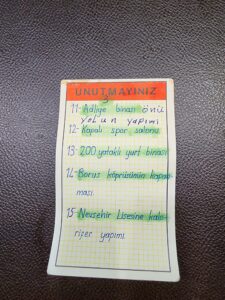 UNUTMAYINIZ
3
11- Adliye binası önü
yolun yapımı
12- Kapalı spor salonu
13- 200 yataklı yurt binası
14- Borus köprüsünün kapan
ması.
15- Nevşehir Lisesine kalo
rifer yapımı